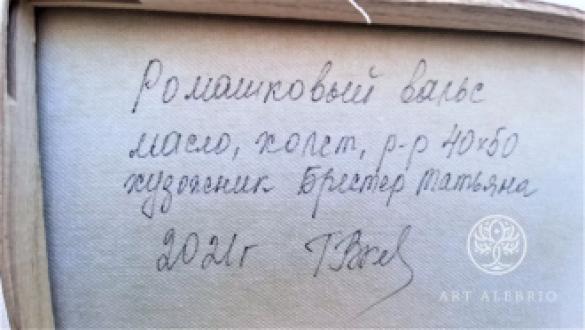 Ромашковый вальс
масло, холст, р-р 40×50
художник Брестер Татьяна
2021г
ART ALEBRIO